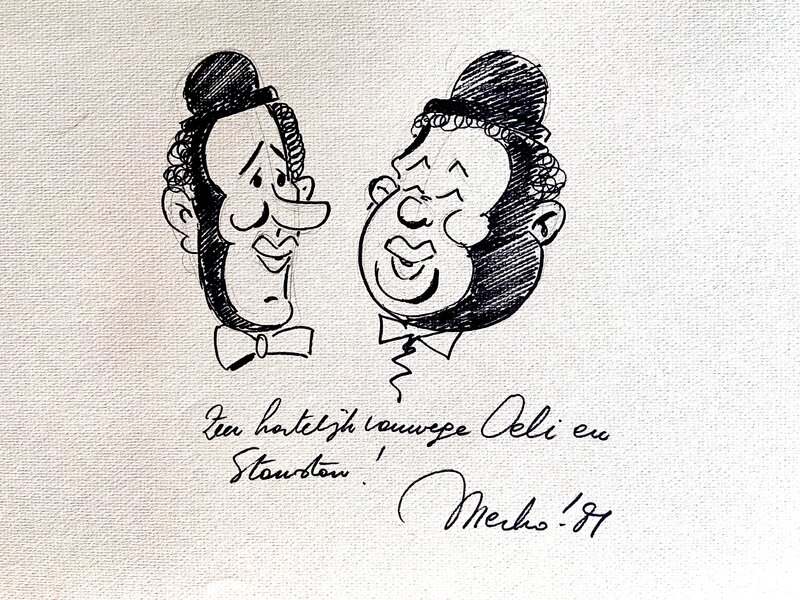 Zeer hartelijk vanwege Oeli en
Stanston!
Merho! '81